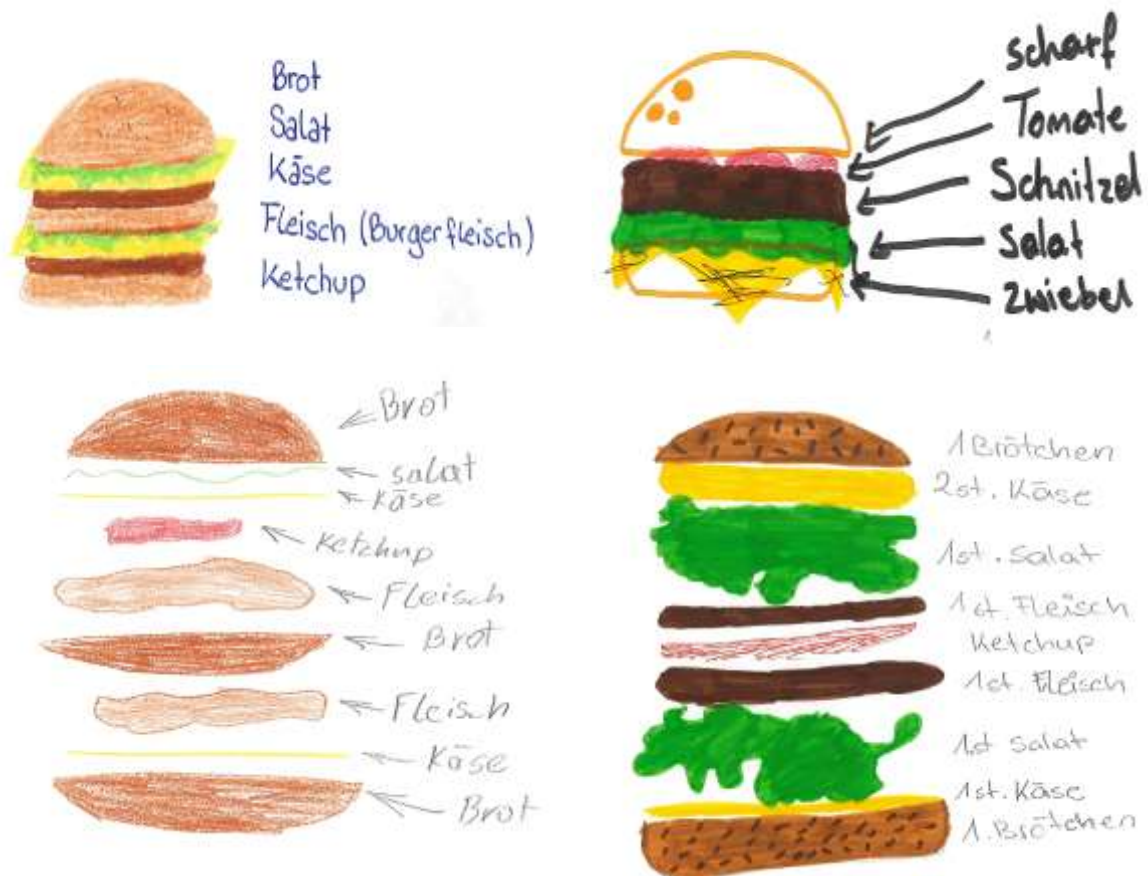 Brot
Salat
Käse
Fleisch (Burgerfleisch)
Ketchup
scharf
Tomate
Schnitzel
Salat
Zwiebel
Brot
salat
Käse
Ketchup
Fleisch
Brot
Fleisch
Käse
Brot
1 Brötchen
2st. Käse
1st. Salat
1st. Fleisch
Ketchup
1st. Fleisch
1st Salat
1st. Käse
1. Brötchen